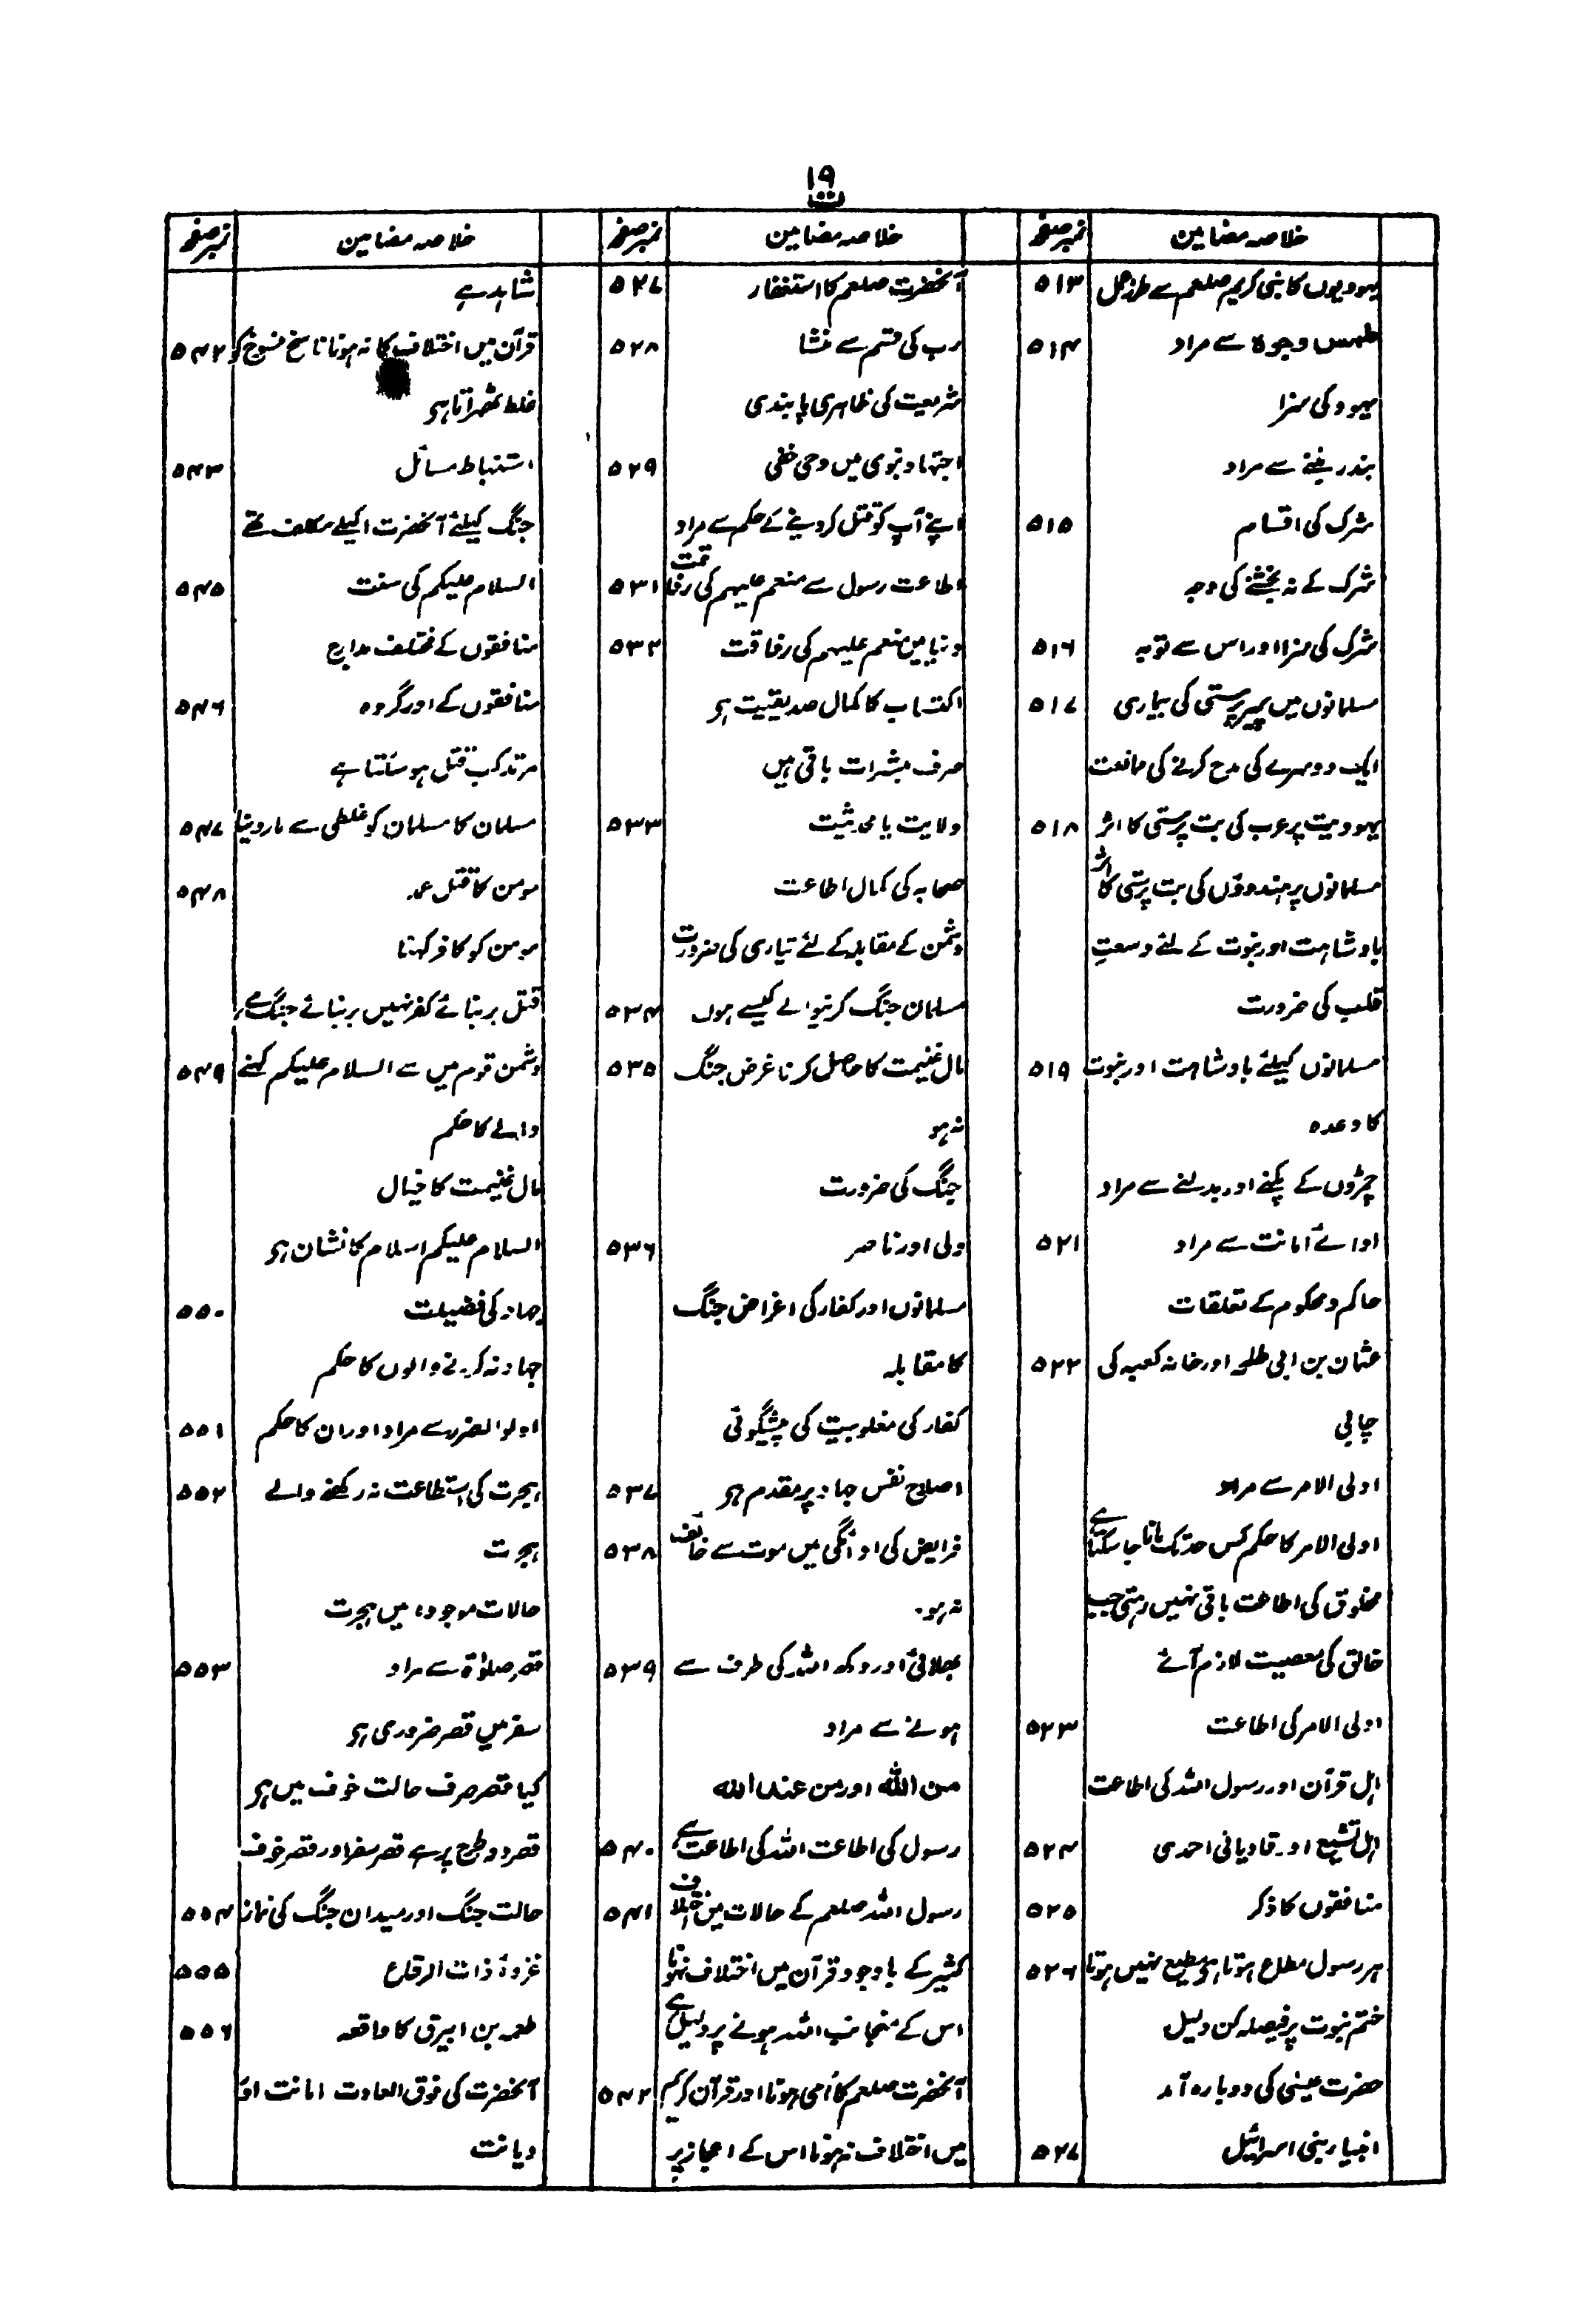 ۱۹
ت
خلاصہ مضامین نمبر صفحہ
یہودیوں کا نبی کریم صلعم سے طرز عمل ۵۱۳
طمس وجوہ سے مراد ۵۱۴
یہود کی سزا
بندر بننے سے مراد
شرک کی اقسام ۵۱۵
شرک کے نہ بخشنے کی وجہ
شرک کی سزا اور اس سے توبہ ۵۱۶
مسلمانوں میں پیر پرستی کی بیماری ۵۱۷
ایک دوسرے کی مدح کرنے کی ممانعت
یہودیت پر عرب کی بت پرستی کا اثر ۵۱۸
مسلمانوں پر ہندوؤں کی بت پرستی کا اثر
بادشاہت اور نبوت کے لئے وسعتِ
قلب کی ضرورت
مسلمانوں کیلئے بادشاہت اور نبوت ۵۱۹
کا وعدہ
چمڑوں کے پکنے اور بدلنے سے مراد
ادائے امانت سے مراد ۵۲۱
حاکم و محکوم کے تعلقات
عثمان بن ابی طلحہ اور خانہ کعبہ کی ۵۲۲
چابی
اولی الامر سے مراد
اولی الامر کا حکم کس حد تک مانا جا سکتا ہے
مخلوق کی اطاعت باقی نہیں رہتی جب
خالق کی معصیت لازم آئے
اولی الامر کی اطاعت ۵۲۳
اہل قرآن اور رسول اللہ کی اطاعت
اہل تشیع اور قادیانی احمدی ۵۲۴
منافقوں کا ذکر ۵۲۵
ہر رسول مطاع ہوتا ہو مطیع نہیں ہوتا ۵۲۶
ختم نبوت پر فیصلہ کن دلیل
حضرت عیسیٰ کی دوبارہ آمد
انبیاء بنی اسرائیل ۵۲۷
خلاصہ مضامین نمبر صفحہ
آنحضرت صلعم کا استغفار ۵۲۷
رب کی قسم سے منشا ۵۲۸
شریعت کی ظاہری پابندی
اجتہاد نبوی میں وحی خفی ۵۲۹
اپنے آپ کو قتل کر دینے کے حکم سے مراد
اطاعت رسول سے منعم علیہم کی رفاقت ۵۳۱
دنیا میں منعم علیہم کی رفاقت ۵۳۲
اکتساب کا کمال صدیقیت ہو
صرف مبشرات باقی ہیں
ولایت یا محدثیت ۵۳۳
صحابہ کی کمال اطاعت
دشمن کے مقابلہ کے لئے تیاری کی ضرورت
مسلمان جنگ کرنیوالے کیسے ہوں ۵۳۴
مال غنیمت کا حاصل کرنا غرض جنگ ۵۳۵
نہ ہو
جنگ کی ضرورت
ولی اور ناصر ۵۳۶
مسلمانوں اور کفار کی اغراض جنگ
کا مقابلہ
کفار کی مغلوبیت کی پیشگوئی
اصلاح نفس جہاد پر مقدم ہو ۵۳۷
فرایض کی ادائگی میں موت سے خائف ۵۳۸
نہ ہو۔
بھلائی اور دکھ اللہ کی طرف سے ۵۳۹
ہونے سے مراد
من اللہ اور من عند اللہ
رسول کی اطاعت اللہ کی اطاعت ہے ۵۴۰
رسول اللہ صلعم کے حالات میں اختلاف ۵۴۱
کثیر کے باوجود قرآن میں اختلاف نہونا
اس کے منجانب اللہ ہونے پر دلیل ہے
آنحضرت صلعم کا اُمی ہونا اور قرآن کریم ۵۴۲
میں اختلاف نہ ہونا اس کے اعجاز پر
خلاصہ مضامین نمبر صفحہ
شاہد ہے
قرآن میں اختلاف کا نہ ہونا ناسخ منسوخ کو ۵۴۲
غلط ٹھہراتا ہو
استنباط مسائل ۵۴۳
جنگ کیلئے آنحضرت اکیلے مکلف تھے
السلام علیکم کی سنت ۵۴۵
منافقوں کے مختلف مدارج
منافقوں کے اور گروہ ۵۴۶
مرتد کب قتل ہو سکتا ہے
مسلمان کا مسلمان کو غلطی سے مار دینا ۵۴۷
مومن کا قتل عمد ۵۴۸
مومن کو کافر کہنا
قتل بر بنائے کفر نہیں بر بنائے جنگ ہے
دشمن قوم میں سے السلام علیکم کہنے ۵۴۹
والے کا حکم
مال غنیمت کا خیال
السلام علیکم اسلام کا نشان ہو
جہاد کی فضیلت ۵۵۰
جہاد نہ کرنے والوں کا حکم
اولوالضرر سے مراد اور ان کا حکم ۵۵۱
ہجرت کی استطاعت نہ رکھنے والے ۵۵۲
ہجرت
حالات موجودہ میں ہجرت
قصر صلوٰۃ سے مراد ۵۵۳
سفر میں قصر ضروری ہو
کیا قصر صرف حالت خوف میں ہو
قصر دو طرح پر ہے قصر سفر اور قصر خوف
حالت جنگ اور میدان جنگ کی نماز ۵۵۴
غزوۂ ذات الرقاع ۵۵۵
طعمہ بن ابیرق کا واقعہ ۵۵۶
آنحضرت کی فوق العادت امانت اور
دیانت